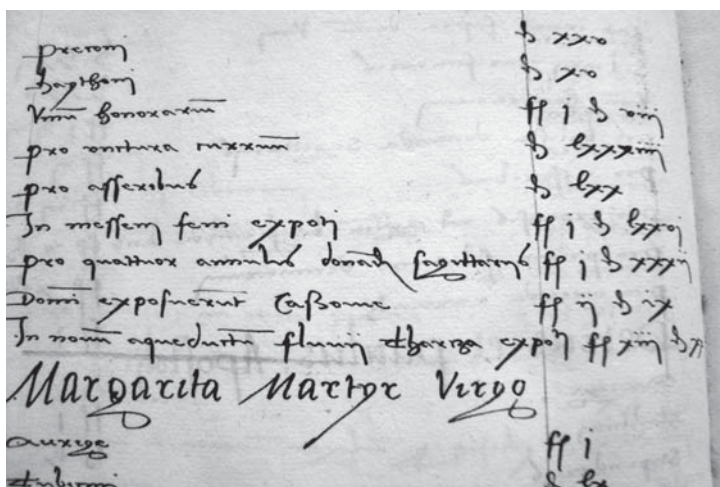 preconi ₰ xxv
haythoni ₰ xv
Vinū honorariū ff j ₰ viij
pro vnctura curruū ₰ lxxxiiij
pro asseribus ₰ lxx
In messem feni expoṡ ff j ₰ lxxvj
pro quattuor annulis donad sagittariis ff j ₰ xxxij
Domi exposuerūt Cassome ff ij ₰ ix
In nouū aqueductū fluuij Tharza expoṡ ff xiiij
Margarita Martyr Virgo
aurige ff j
₰ lx